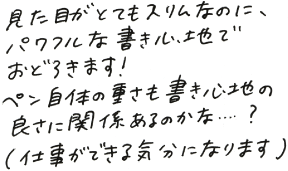 見た目がとてもスリムなのに、
パワフルな書き心地で
おどろきます！
ペン自体の重さも書き心地の
良さに関係あるのかな…．？
（仕事ができる気分になります）